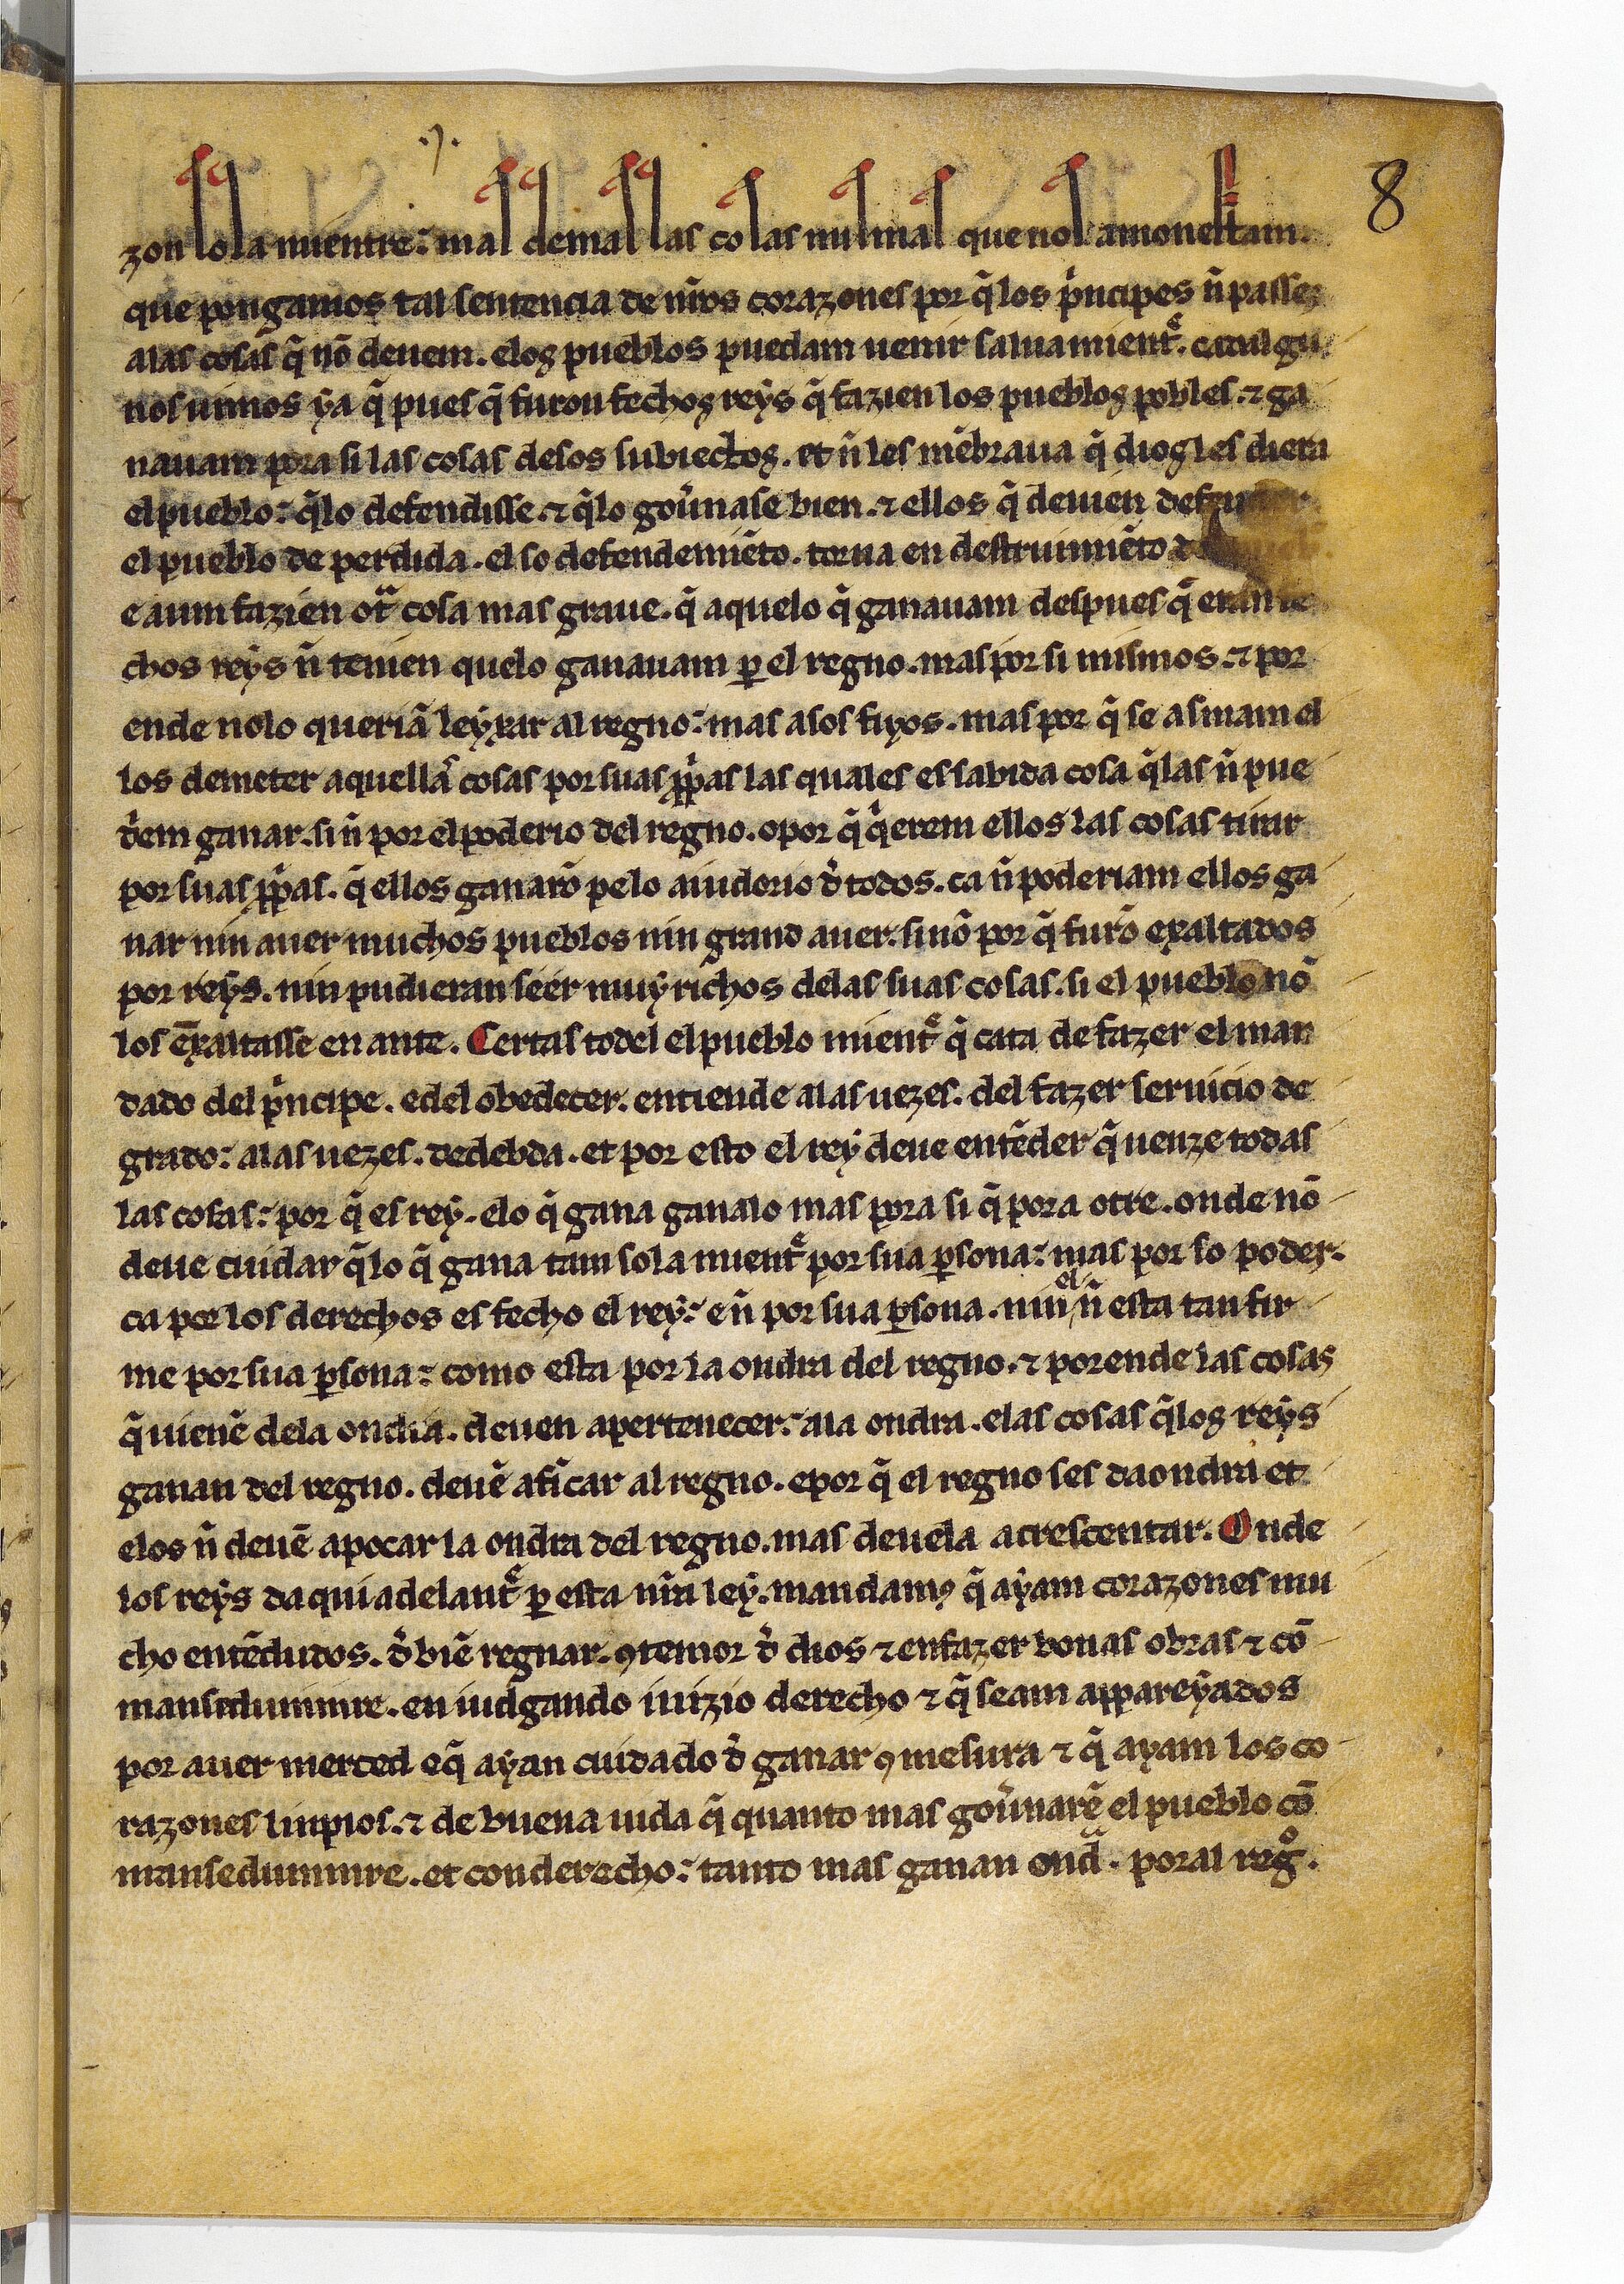 .7.
8
zon sola mientre: mas demas las cosas mismas que nos amonestam.
que pongamos tal sentencia de nr̃os corazones por q̃ los pͥncipes ñ passe
alas cosas q̃ nõ deuem. elos pueblos puedam uenir saluamientͤ. ca algu
nos uimos ẏa q̃ pues q̃ furon fechos reẏs q̃ fazien los pueblos pobles. ⁊ ga
nauam pora si las cosas desos subiectos. et ñ les mẽbraua q̃ dios les diera
el pueblo: q̃lo defendisse. ⁊ q̃lo gou̾nase bien. ⁊ ellos q̃ deuien defender
el pueblo de perdida. el so defendemiẽto. torna en destruimiẽto
e aum fazien otᷓ cosa mas graue. q̃ aquelo q̃ ganauam despues q̃ eran fe
chos reẏs ñ tenien quelo ganauam ꝑ el regno. mas por si mismos. ⁊ por
ende nolo queriã leẏxar al regno: mas asos fiyos. mas por q̃ se asmam el
los demeter aquellas cosas por suas ꝓpͥas las quales es sabida cosa q̃las ñ pue
d̾em ganar. si ñ por el poderio del regno. o por q̃ qͥerem ellos las cosas tirar
por suas ꝓpͥas. q̃ ellos ganarõ pelo aiudorio d̾ todos. ca ñ poderiam ellos ga
nar nin auer muchos pueblos nin grand auer. si nõ por q̃ furõ exaltados
por reẏs. nin pudieran seer muẏ richos delas suas cosas. si el pueblo nõ
los exaltasse en ante. Certas todel el pueblo mientͤ q̃ cata de fazer el man
dado del pͥncipe. edel obedecer. entiende alas uezes. del fazer seruicio de
grado: alas uezes. dedebda. et por esto el reẏ deue entẽder q̃ uenze todas
las cosas: por q̃ es reẏ. elo q̃ gana ganalo mas pora si q̃ pora otre. onde nõ
deue cuidar q̃ lo q̃ gana tam sola mientͤ por sua ꝑsona: mas por so poder.
ca por los derechos es fecho el reẏ: e ñ por sua ꝑsona. nin el ñ esta tan fir
me por sua ꝑsona: como esta por la ondra del regno. ⁊ porende las cosas
q̃ uienẽ dela ondra. deuen apertenecer: ala ondra. elas cosas q̃ los reẏs
ganan del regno. deuẽ aficar al regno. epor q̃ el regno les da ondra et
elos ñ deuẽ apocar la ondra del regno. mas deuela acrescentar. Onde
los reẏs daqui adelantͤ ꝑ esta nr̃a leẏ. mandamꝰ q̃ aẏam corazones mu
cho entẽdudos. d̾ biẽ regnar. ꝯ temor d̾ dios ⁊ enfazer bonas obras ⁊ cõ
mansedumnre. en iudgando iuizio derecho ⁊ q̃ seam appareẏados
por auer merced eq̃ aẏan cuidado d̾ ganar ꝯ mesura ⁊ q̃ ayam los co
razones linpios. ⁊ de buena uida q̃ quanto mas gou̾narẽ el pueblo cõ
mansedumnre. et con derecho: tanto mas ganan ondᷓ. poral regͦ.